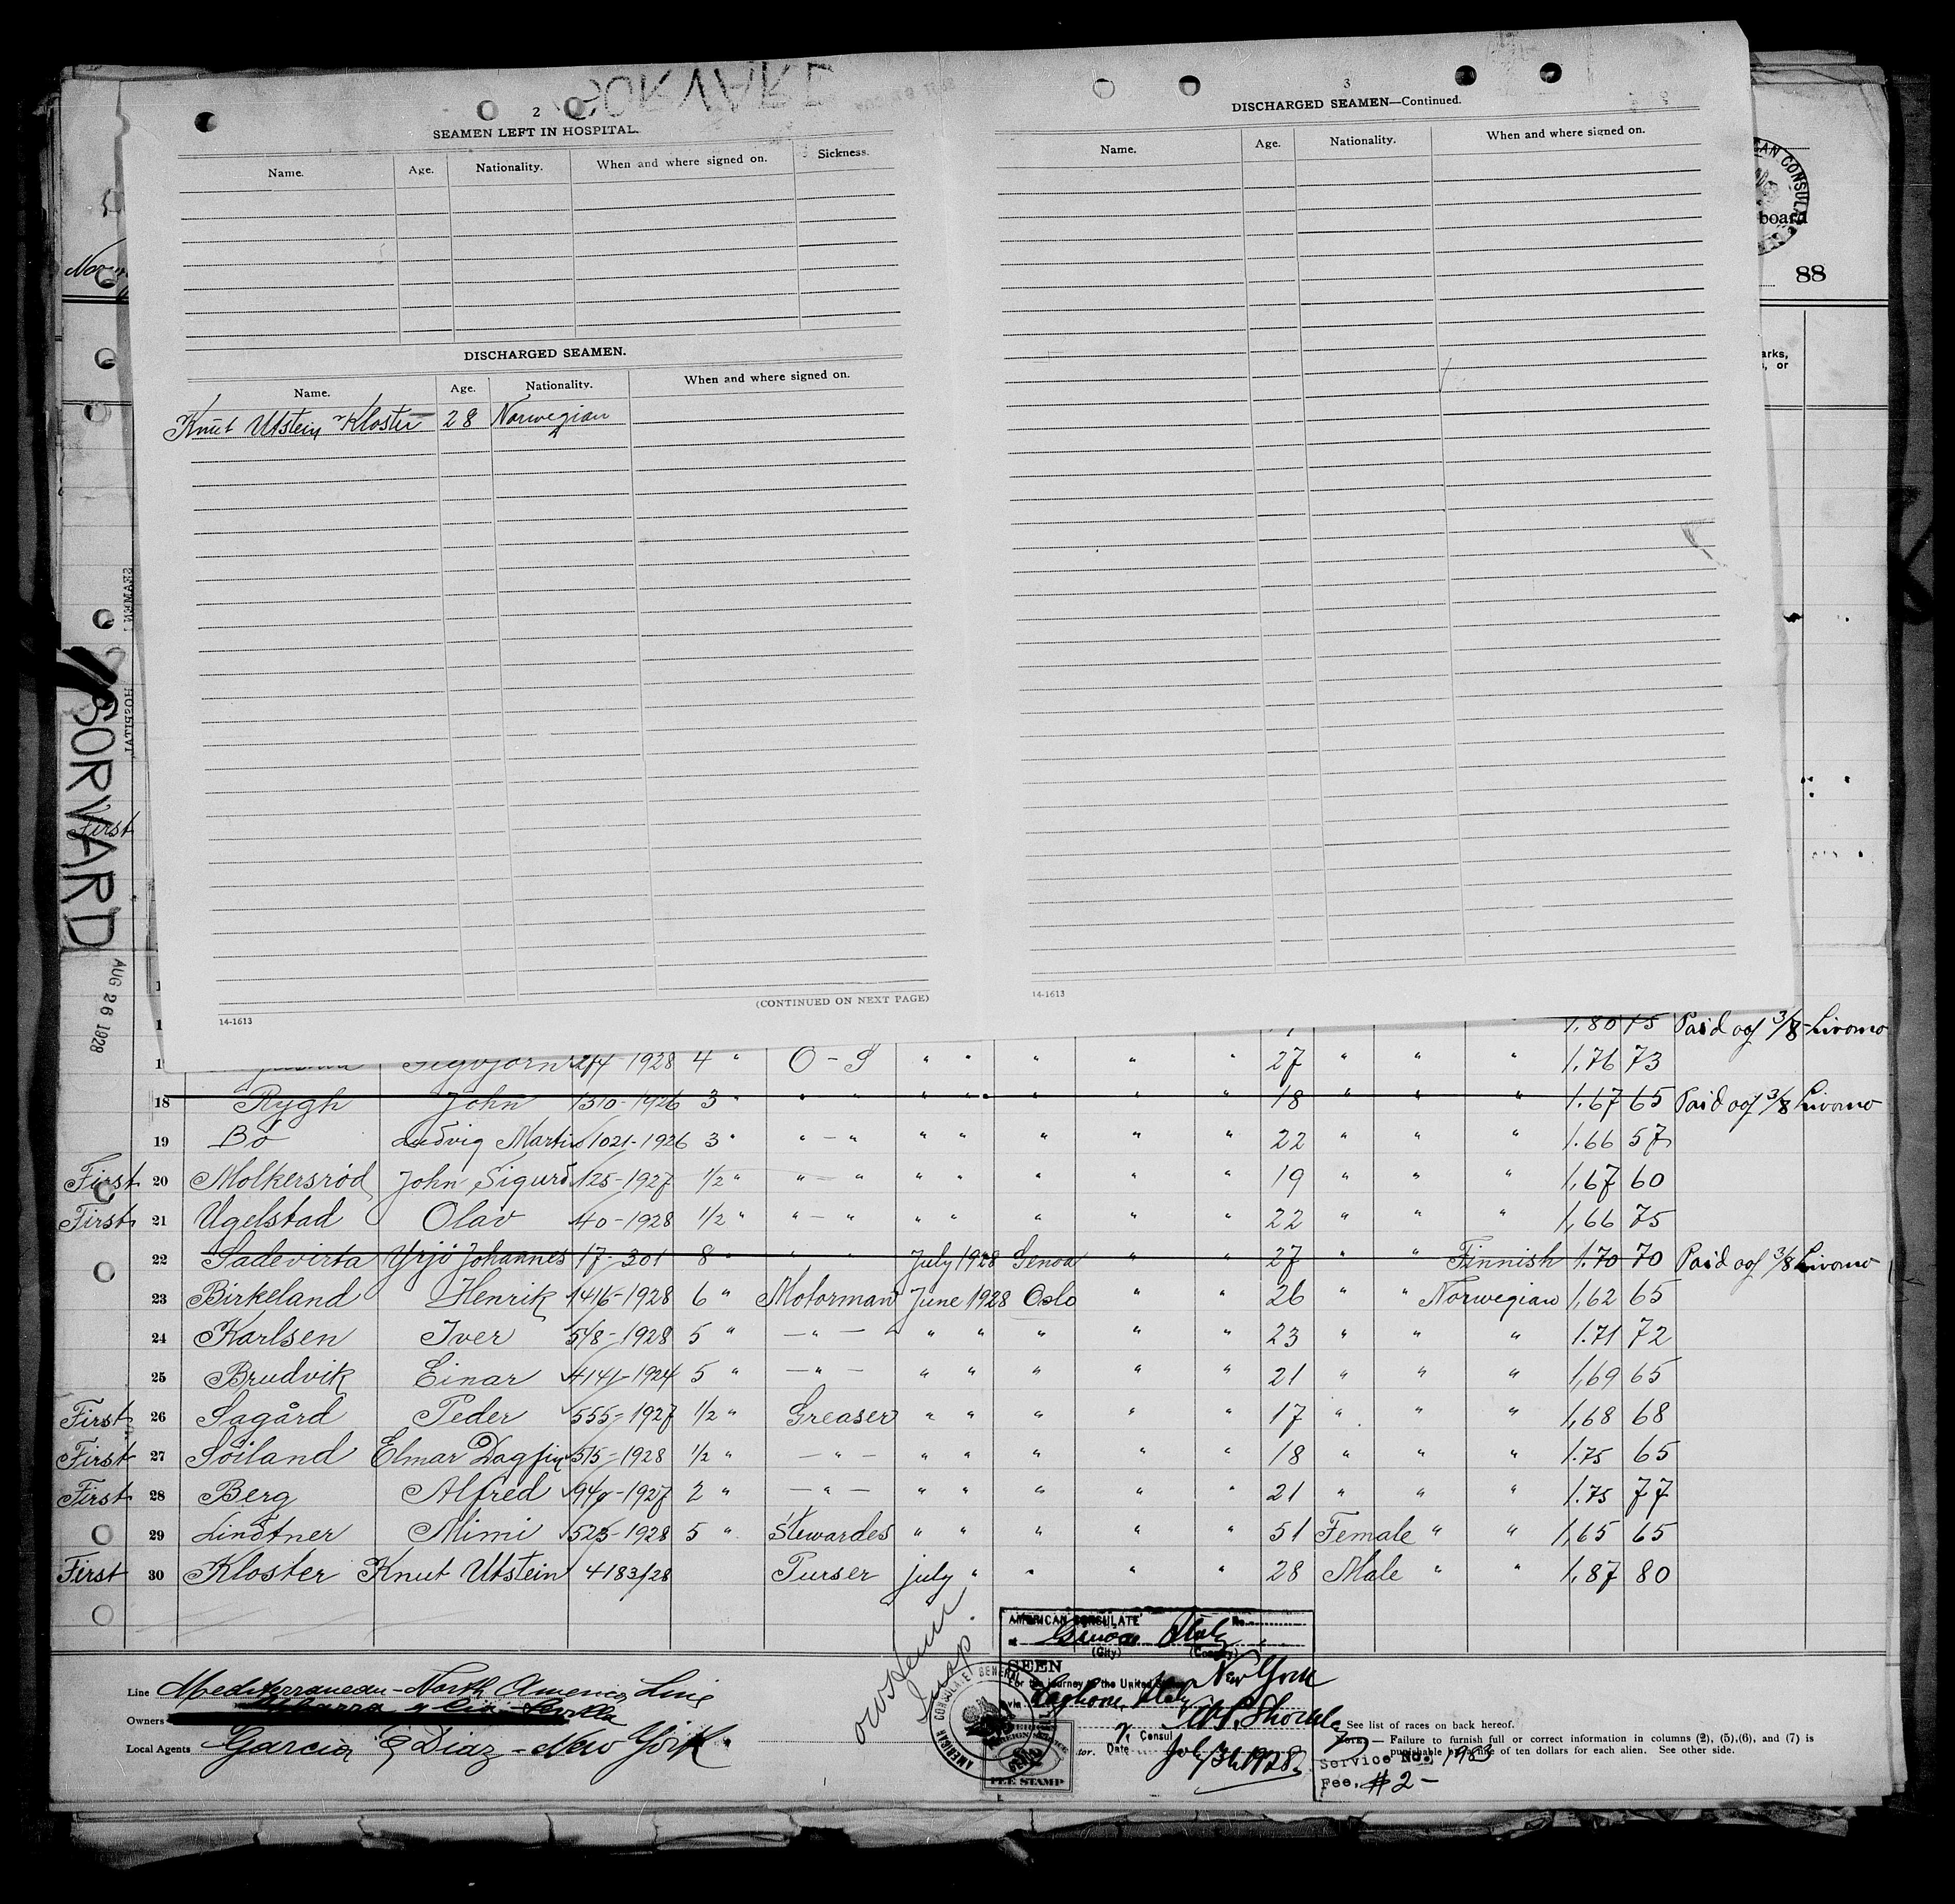 2
SEAMEN LEFT IN HOSPITAL.
Name. Age. Nationality. When and where signed on. Sickness.
DISCHARGED SEAMEN.
Name. Age. Nationality. When and where signed on.
Knut Utstein Kloster 28 Norwegian
(CONTINUED ON NEXT PAGE)
14-1613
3
DISCHARGED SEAMEN—Continued.
Name. Age. Nationality. When and where signed on.
14-1613
CAN CONSULA
board
88
arks,
, or
SEAMEN
HOSPITAL
SORWARD
First
AUG 26 1928
1,80 75 Paid off 3/8 Livorno
4 " O - S " " " " " 27 " " " 1,76 73
18 Rygh John 1310-1926 3 " " " " " " " " 18 " " " 1.67 65 Paid off 3/8 Livorno
19 Bö Ludvig Martin 1021-1926 3 " " - " " " " " " 22 " " " 1.66 57
First 20 Molkersröd John Sigurd 125-1927 1/2 " " - " " " " " " 19 " " " 1,67 60
First 21 Ugelstad Olav 40-1928 1/2 " " - " " " " " " 22 " " " 1,66 75
22 Sadevirta Yrjö Johannes 17-301 8 " " " July 1928 Genoa " " 27 " " Finnish 1.70 70 Paid off 3/8 Livorno
23 Birkeland Henrik 1416-1928 6 " Motorman June 1928 Oslo " " 26 " " Norwegian 1,62 65
24 Karlsen Iver 548-1928 5 " - " - " " " " " 23 " " " 1.71 72
25 Brudvik Einar 4141-1924 5 " - " - " " " " " 21 " " " 1,69 65
First 26 Sagård Peder 555-1927 1/2 " Greaser " " " " " 17 " " " 1,68 68
First 27 Söiland Elmar Dagfin 515-1928 1/2 " - " - " " " " " 18 " " " 1.75 65
First 28 Berg Alfred 940-1927 2 " - " - " " " " " 21 " " " 1.75 77
29 Lindtner Mimi 523-1928 5 " Stewardes " " " " " 51 Female " " 1,65 65
First 30 Kloster Knut Utstein 4183/28 Purser july " " " " 28 Male " " 1,87 80
Line Mediterranean-North America Line
Owners
Local Agents Garcia & Diaz - New York
Insp.
AMERICAN CONSULATE No.
Genoa Italy
(City) (Country)
SEEN
For the journey to the United States
New York
via Leghorn, Italy
Consul
Date July 31 1928
AMERICAN CONSULATE GENERAL
FEE STAMP
See list of races on back hereof.
NOTE.— Failure to furnish full or correct information in columns (2), (5), (6), and (7) is
punishable by a fine of ten dollars for each alien. See other side.
Service No. 1953
Fee, #2-